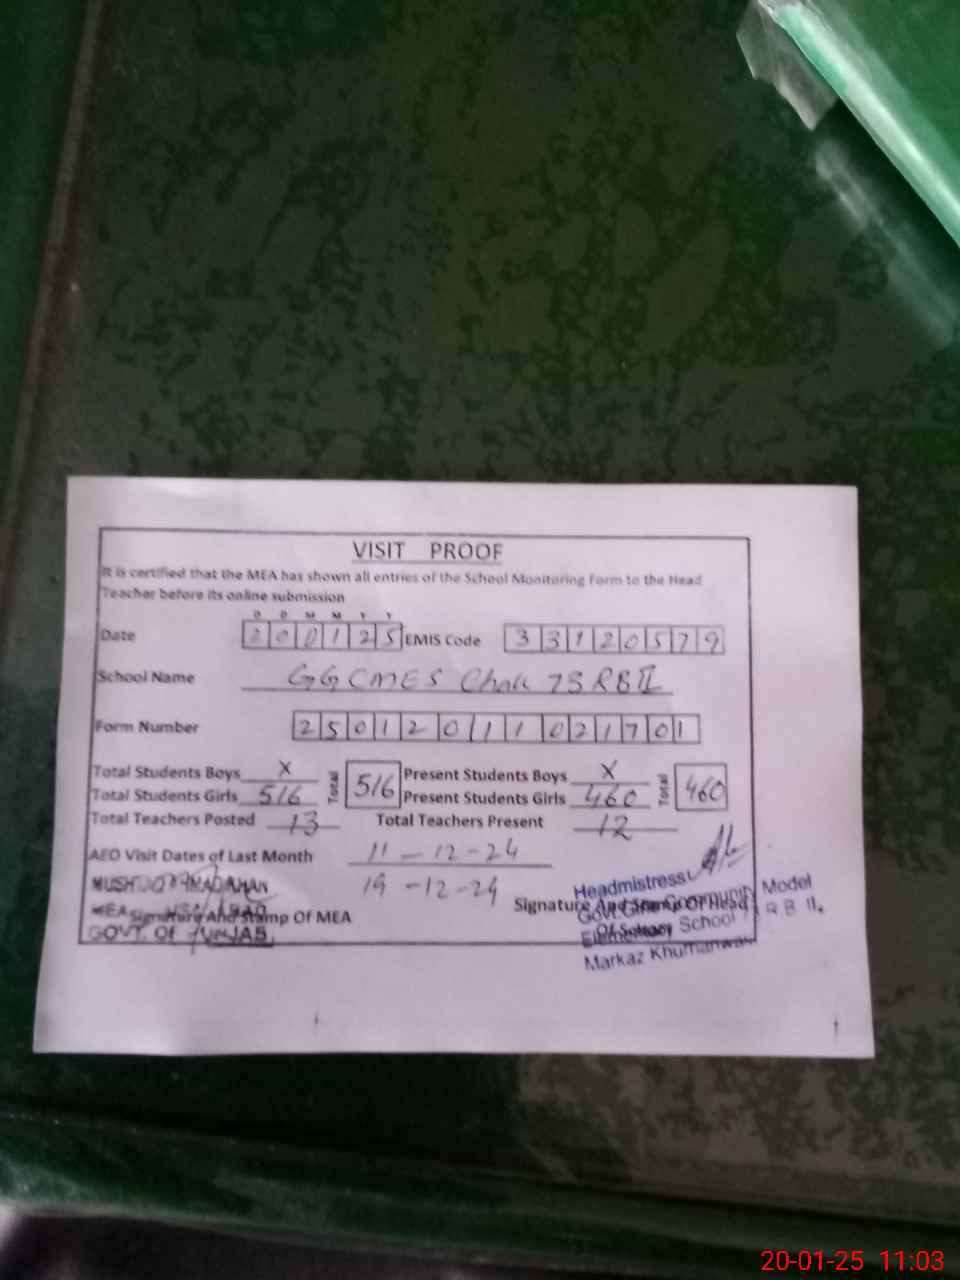 VISIT PROOF
It is certified that the MEA has shown all entries of the School Monitoring Form to the Head
Teacher before its online submission
D D M M Y Y
Date 200125 EMIS Code 33120579
School Name GGCMES Chak 73 RB II
Form Number 250120111021701
Total Students Boys X Total 516 Present Students Boys X Total 460
Total Students Girls 516 Present Students Girls 460
Total Teachers Posted 13 Total Teachers Present 12
AEO Visit Dates of Last Month 11-12-24
19-12-24
MEA
Signature And Stamp Of MEA
GOVT. OF PUNJAB
Signature And Stamp Of Head
Of School
Headmistress
Govt. Community Model
Elementary School R B II.
Markaz
20-01-25 11:03